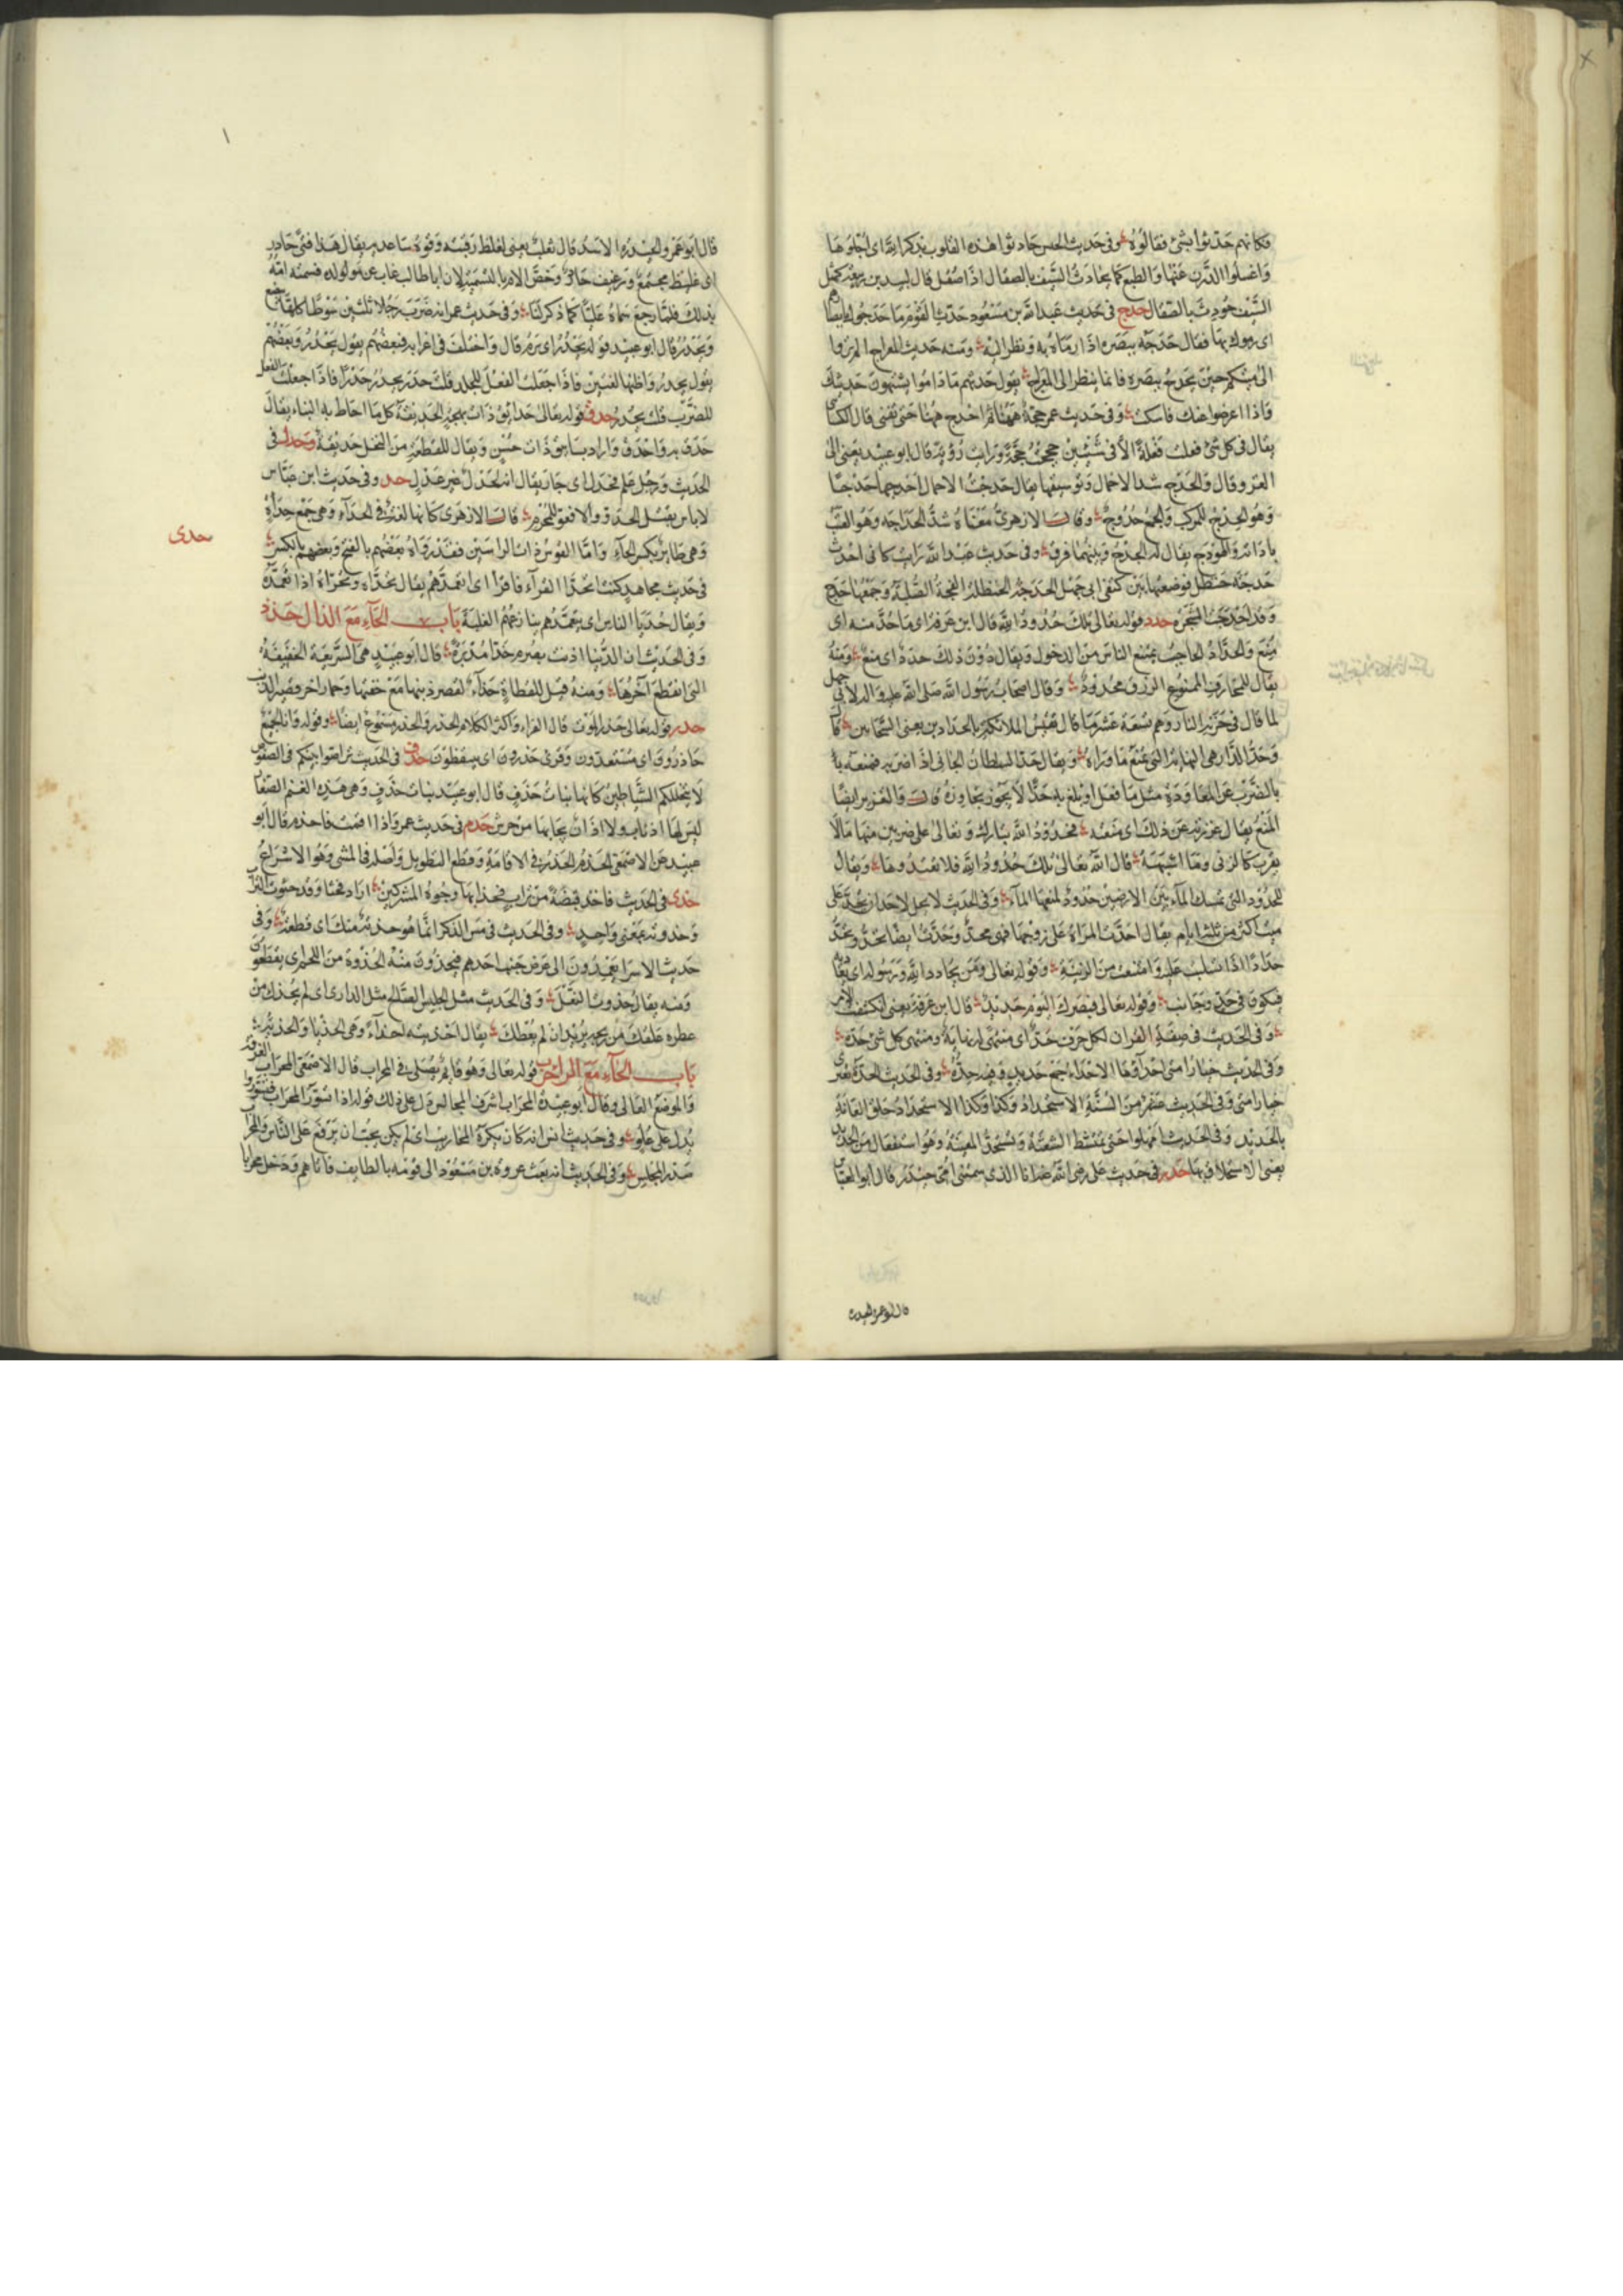 فكانهم حدثوا بشئ فقالوه وفى حديث الحسن حادثوا هذه القلوب بذكر الله اى اجلوها
واغسلوا الدرن عنها والطبع كما يحادث السيف بالصقال اذا صقل قال لبيد
السيف حودث بالصقال حدج فى حديث عبد الله بن مسعود حدث القوم ما حدجوك بابصارهم
اى رموك بها يقال حدجه ببصره اذا رماه به ونظر اليه ومنه حديث المعراج الم تروا
الى ميتكم حين يحدج ببصره فانما ينظر الى المعراج يقول حدثهم ما داموا يشتهون حديثك
فاذا اعرضوا عنك فاسكت وفى حديث عمر حجة ههنا ثم احدج ههنا حتى تفنى قال الكسائى
يقال فى كل شئ فعلت فعلة الا فى شيئين حججت حجة ورايت رؤية قال ابو عبيد يعنى الى
الغزو قال والحدج شد الاحمال وتوسيقها يقال حدجت الاحمال احدجها حدجا
وهو الحدج للمركب والجمع حدوج وقال الازهرى معناه شد الحداجة وهو القتب
باداته والهودج يقال له الحدج وبينهما فرق وفى حديث عبد الله رايت كانى اخذت
حدجة حنظل فوضعتها بين كتفى ابى جهل الحدجة الحنظلة الفجة الصلبة وجمعها حدج
وقد احدجت الشجرة حدد قوله تعالى تلك حدود الله قال ابن عرفة اى ما حد منه اى
منع والحداد الحاجب يمنع الناس من الدخول ويقال دون ذلك حدد اى منع ومنه
يقال للمحارف الممنوع الرزق محدود وقال اصحاب رسول الله صلى الله عليه واله لابى جهل
لما قال فى خزنة النار وهم تسعة عشر ما قال تقيس الملائكة بالحدادين يعنى السجانين قال
وحد الدار هى النهاية التى تمنع ما وراه ويقال حد السلطان الجانى اذا ضربه فمنعه
بالضرب عن المعاودة مثل ما فعل او بلغ به حدا لا يجوز تجاوزه قال والتعزير ايضا
المنع يقال عزرته عن ذلك اى منعه فحدود الله تبارك وتعالى على ضربين منها ما لا
يقرب كالزنى وما اشبهه قال الله تعالى تلك حدود الله فلا تعتدوها ويقال
للحدود التى تمسك الماء بين الارضين حدود لمنعها الماء وفى الحديث لا يحل لاحد ان يحد على
ميت اكثر من ثلثة ايام يقال احدت المراة على زوجها فهى محد وحدت ايضا تحد وتحد
حدادا اذا تسلبت عليه وامتنعت من الزينة وقوله تعالى ومن يحادد الله ورسوله اى
فيكون فى حد وجانب وقوله تعالى فبصرك اليوم حديد قال ابن عرفة يعنى انكشف الامر
وفى الحديث فى صفة القران لكل حرف حد اى منتهى له نهاية ومنتهى كل شئ حده
وفى الحديث خيار امتى احداؤها الاحداء جمع حديد وفيه حدة وفى الحديث الحدة تعترى
خيار امتى وفى الحديث عشر من السنة الاستحداد وكذا وكذا الاستحداد حلق العانة
بالحديد وفى الحديث امهلوا حتى تمتشط الشعثة وتستحد المغيبة وهو استفعال من الحديد
يعنى الاستحلاق بها حدر فى حديث على رضى الله عنه انا الذى سمتنى امى حيدره قال ابو العباس
قال ابو عمرو الحيدره
قال ابو عمرو الحيدرة الاسد قال ثعلب يعنى لغلظ رقبته وقوة ساعديه يقال هذا فتى حادر
اى غليظ مجتمع ورغيف حادر وخص الام بالتسمية لان ابا طالب غاب عن مولوده فسمته امه
بذلك فلما رجع سماه عليا كما ذكرنا وفى حديث عمر انه ضرب رجلا ثلثين سوطا كلها يبضع
ويحدر قال ابو عبيد قوله يحدر اى يرم قال واختلف فى اعرابه فبعضهم يقول يحدر وبعضهم
يقول يحدر واظنها لغتين فاذا جعلت الفعل للجلد قلت حدر يحدر حدرا فاذا جعلت الفعل
للضرب قلت يحدر حدق قوله تعالى حدائق ذات بهجة الحديقة كل ما احاط به البناء يقال
حدق به واحدق واراد بساتين ذات حسن ويقال للقطعة من النخل حديقة وحدل فى
الحديث ورجل علم فحدل اى جار يقال انه لحدل غير عدل حد وفى حديث ابن عباس
لا باس بقتل الحدو والافعو للمحرم قال الازهرى كانها لغة فى الحداء وهى جمع حداة
وهى طاير بكسر الحاء واما الفوس ذات الراسين فقد رواه بعضهم بالفتح وبعضهم بالكسر
حدى
فى حديث مجاهد كنت اتحدا القرآء فاقرا اى اتعمدهم يقال تحداه وتحراه اذا تعمده
ويقال حديا الناس اى يتعمدهم ينازعهم الغلبة باب الحاء مع الذال حذذ
وفى الحديث ان الدنيا اذنت بصرم حذا مدبرة قال ابو عبيد هى السريعة الخفيفة
التى انقطع آخرها ومنه قيل للقطاة حذاء لقصر ذنبها مع خفتها وحمار احذ قصير الذنب
حذر قوله تعالى حذر الموت قال الفراء واكثر الكلام الحذر والحذر مسموع ايضا وقوله وانا لجميع
حاذرون اى مستعدون وقرئ حذرون اى متيقظون حذف فى الحديث تراصوا بينكم فى الصفوف
لا يتخللكم الشياطين كانها بنات حذف قال ابو عبيد بنات حذف وهى هذه الغنم الصغار
ليس لها اذناب ولا اذان يجاء بها من جرش حذم فى حديث عمر واذا اقمت فاحذم قال ابو
عبيد عن الاصمعى الحذم الحذر فى الاقامة وقطع التطويل واصله فى المشى وهو الاسراع
حذى فى الحديث فاخذ قبضة من تراب فحذا بها وجوه المشركين اراد حثا وقد حثوت التراب
وحذوته بمعنى واحد وفى الحديث فى مس الذكر انما هو حذية منك اى قطعة وفى
حديث الاسرا يعمدون الى عرض جنب احدهم فيحذون منه الحذوة من اللحم اى يقطعون
ومنه يقال حذوت النعل وفى الحديث مثل الجليس الصالح مثل الدارى ان لم يحذك من
عطره علقك من ريحه يريد ان لم يعطك يقال احذيته احذاء وهى الحذيا والحذية
باب الحاء مع الراء حرب قوله تعالى وهو قائم يصلى فى المحراب قال الاصمعى المحراب الغرفة
والموضع العالى وقال ابو عبيدة المحراب اشرف المجالس دل على ذلك قوله اذ تسوروا المحراب فتسوروا
يدل على علو وفى حديث انس انه كان يكره المحاريب اى لم يكن يحب ان يرفع على الناس والمحراب
صدر المجلس وفى الحديث انه بعث عروة بن مسعود الى قومه بالطايف فاتاهم ودخل محرابا